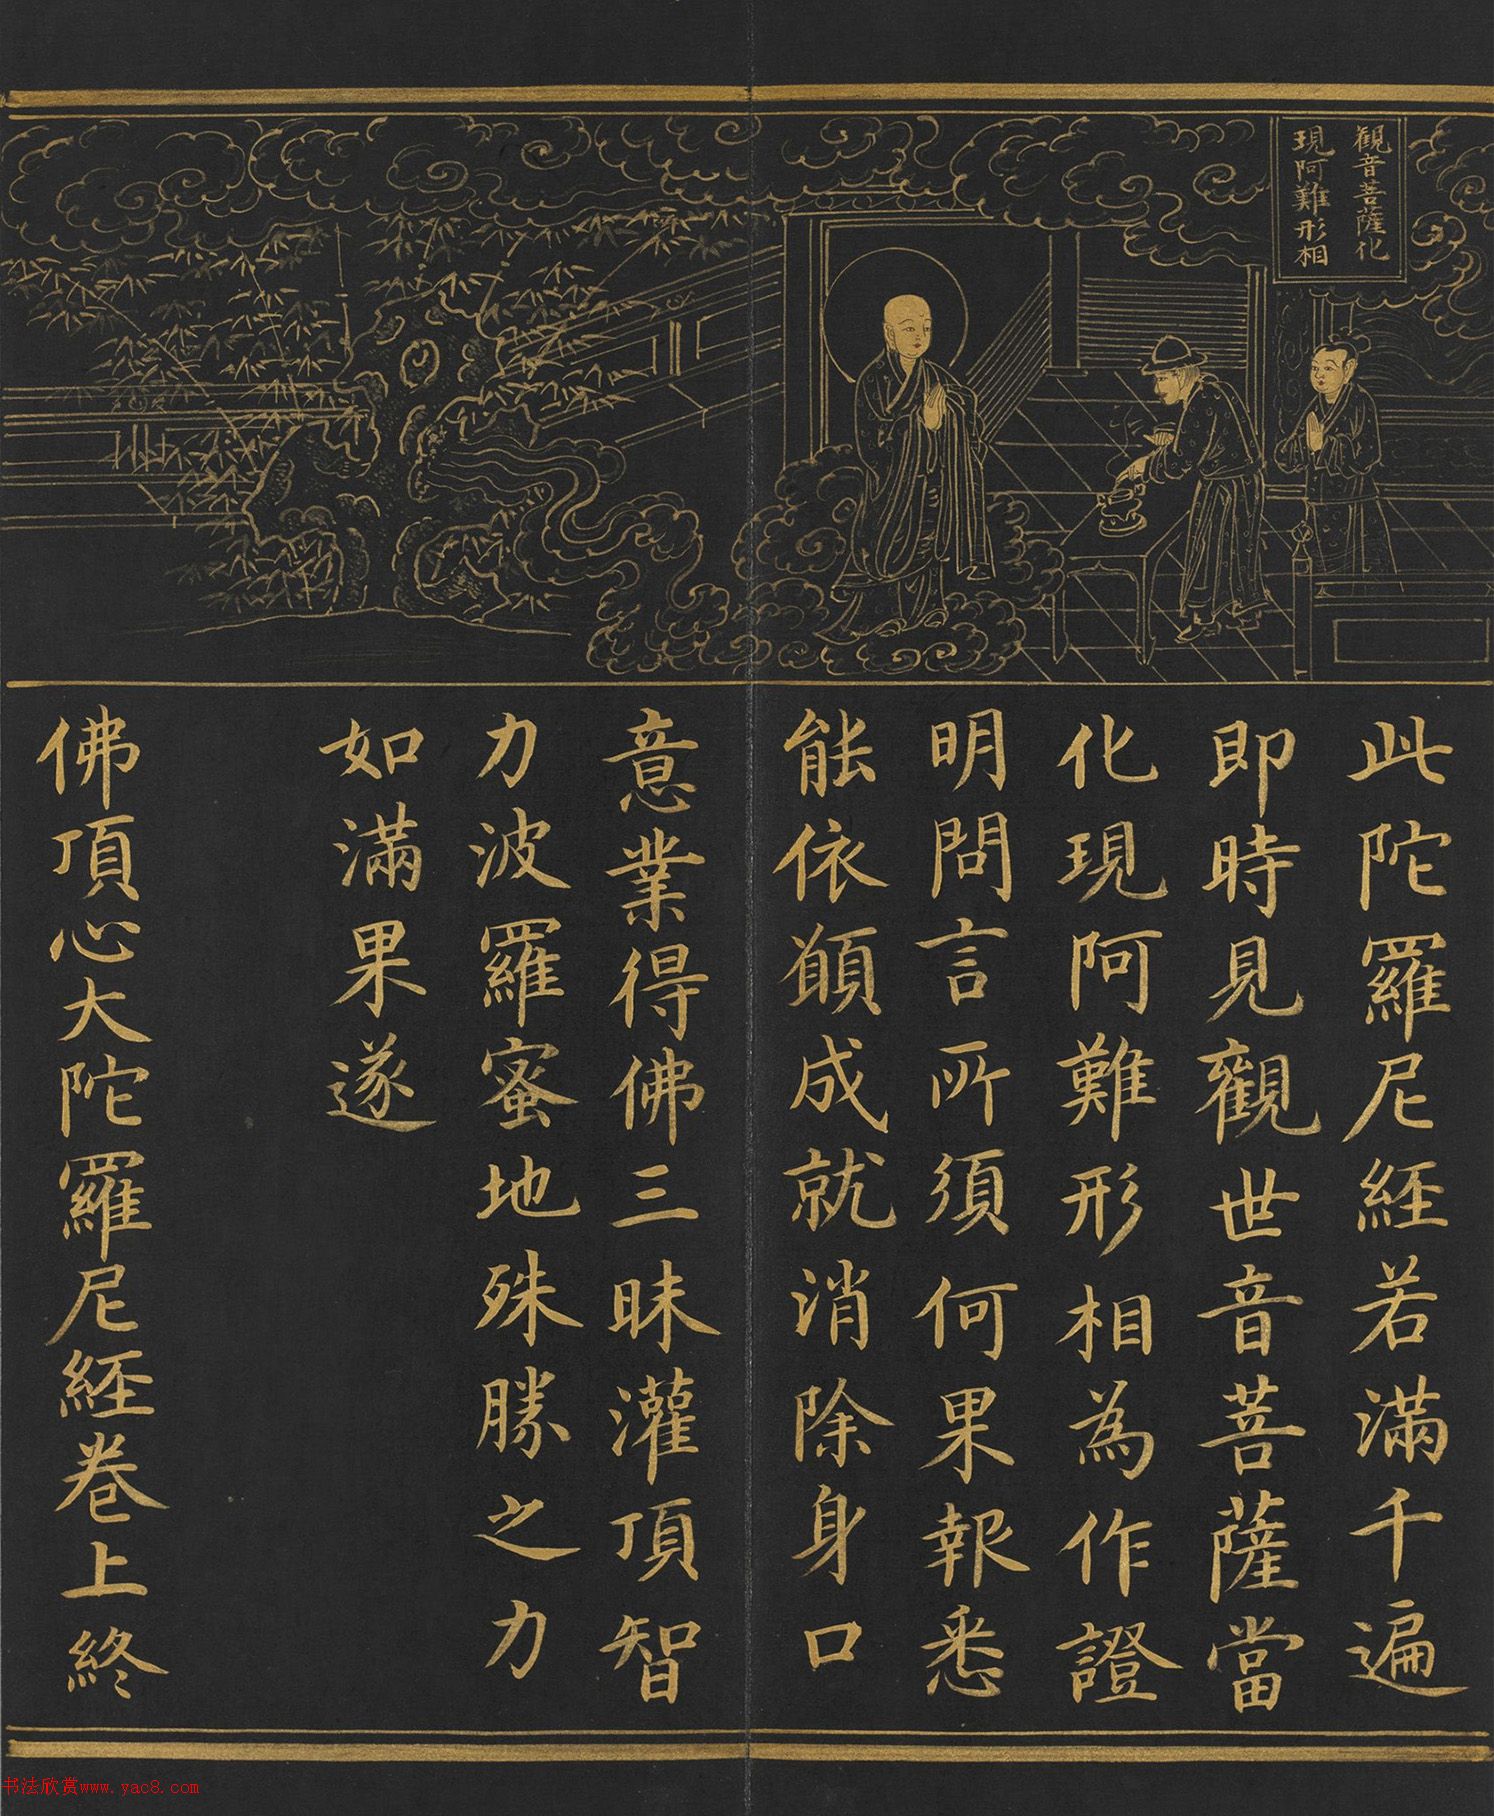 觀音菩薩化
現阿難形相
此陀羅尼經若滿千遍
即時見觀世音菩薩當
化現阿難形相為作證
明問言所須何果報悉
能依願成就消除身口
意業得佛三昧灌頂智
力波羅蜜地殊勝之力
如滿果遂
佛頂心大陀羅尼經卷上終
书法欣赏www.yac8.com